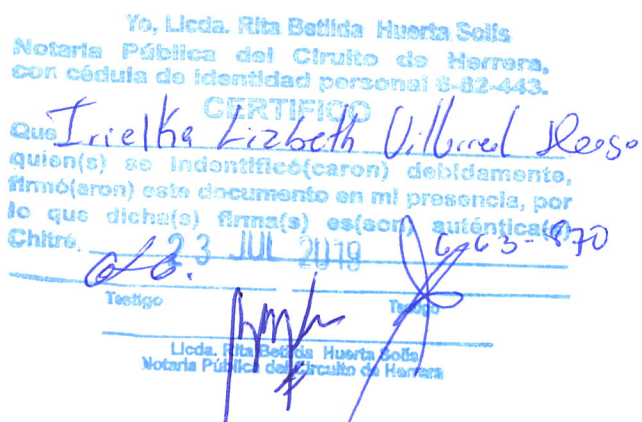 Yo, Licda. Rita Betilda Huerta Solís
Notaria Pública del Ciruito de Herrera,
con cédula de identidad personal 6-82-443.
CERTIFICO
Que Irielka Lizbeth Villarreal
quien(s) se indontificó(caron) debidamente,
firmó(aron) este documento en mi presencia, por
lo que dicha(s) firma(s) es(son) auténtica(s)
Chitré, 23 JUL 2019 6-63-870
Testigo Testigo
Licda. Rita Betilda Huerta Solís
Notaria Pública del Circuito de Herrera